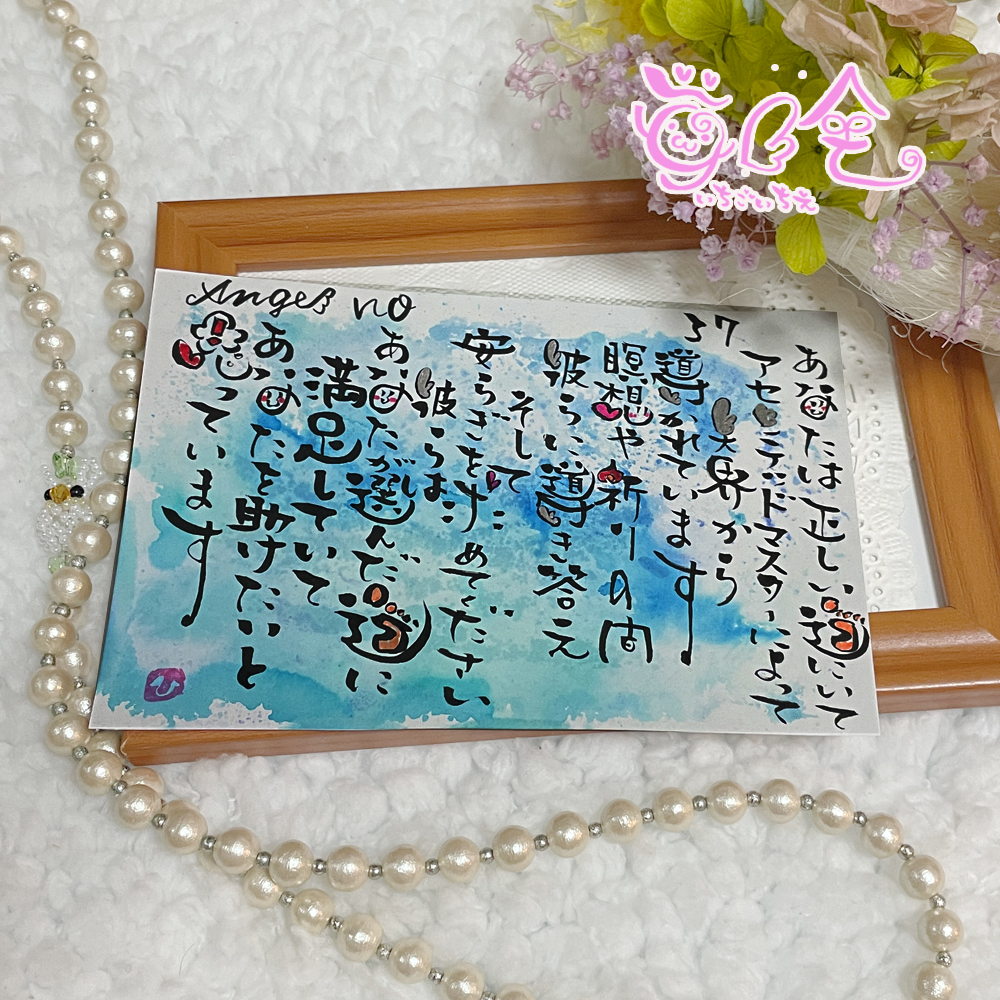 いちごいちえ
Angel no
37
あなたは正しい道にいて
アセンテッドマスターによって
天界から
導かれています
瞑想や祈りの間
彼らに導き答え
そして
安らぎを汁めてください
彼らは
あなたが選んだ道に
満足していて
あなたを助けたいと
思っています